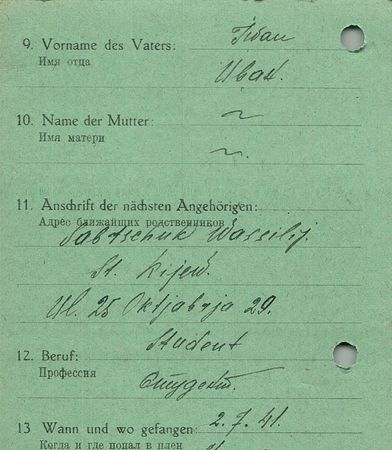 9. Vorname des Vaters: Iwan
Имя отца
Иван.
10. Name der Mutter: ~
Имя матери
~.
11. Anschrift der nächsten Angehörigen:
Адрес ближайших родственников
Wassilij.
St. Kijew.
Ul. 25 Oktjabrja 29.
Student
12. Beruf:
Профессия
Студент.
13 Wann und wo gefangen: 2. 7. 41.
Когда и где попал в плен